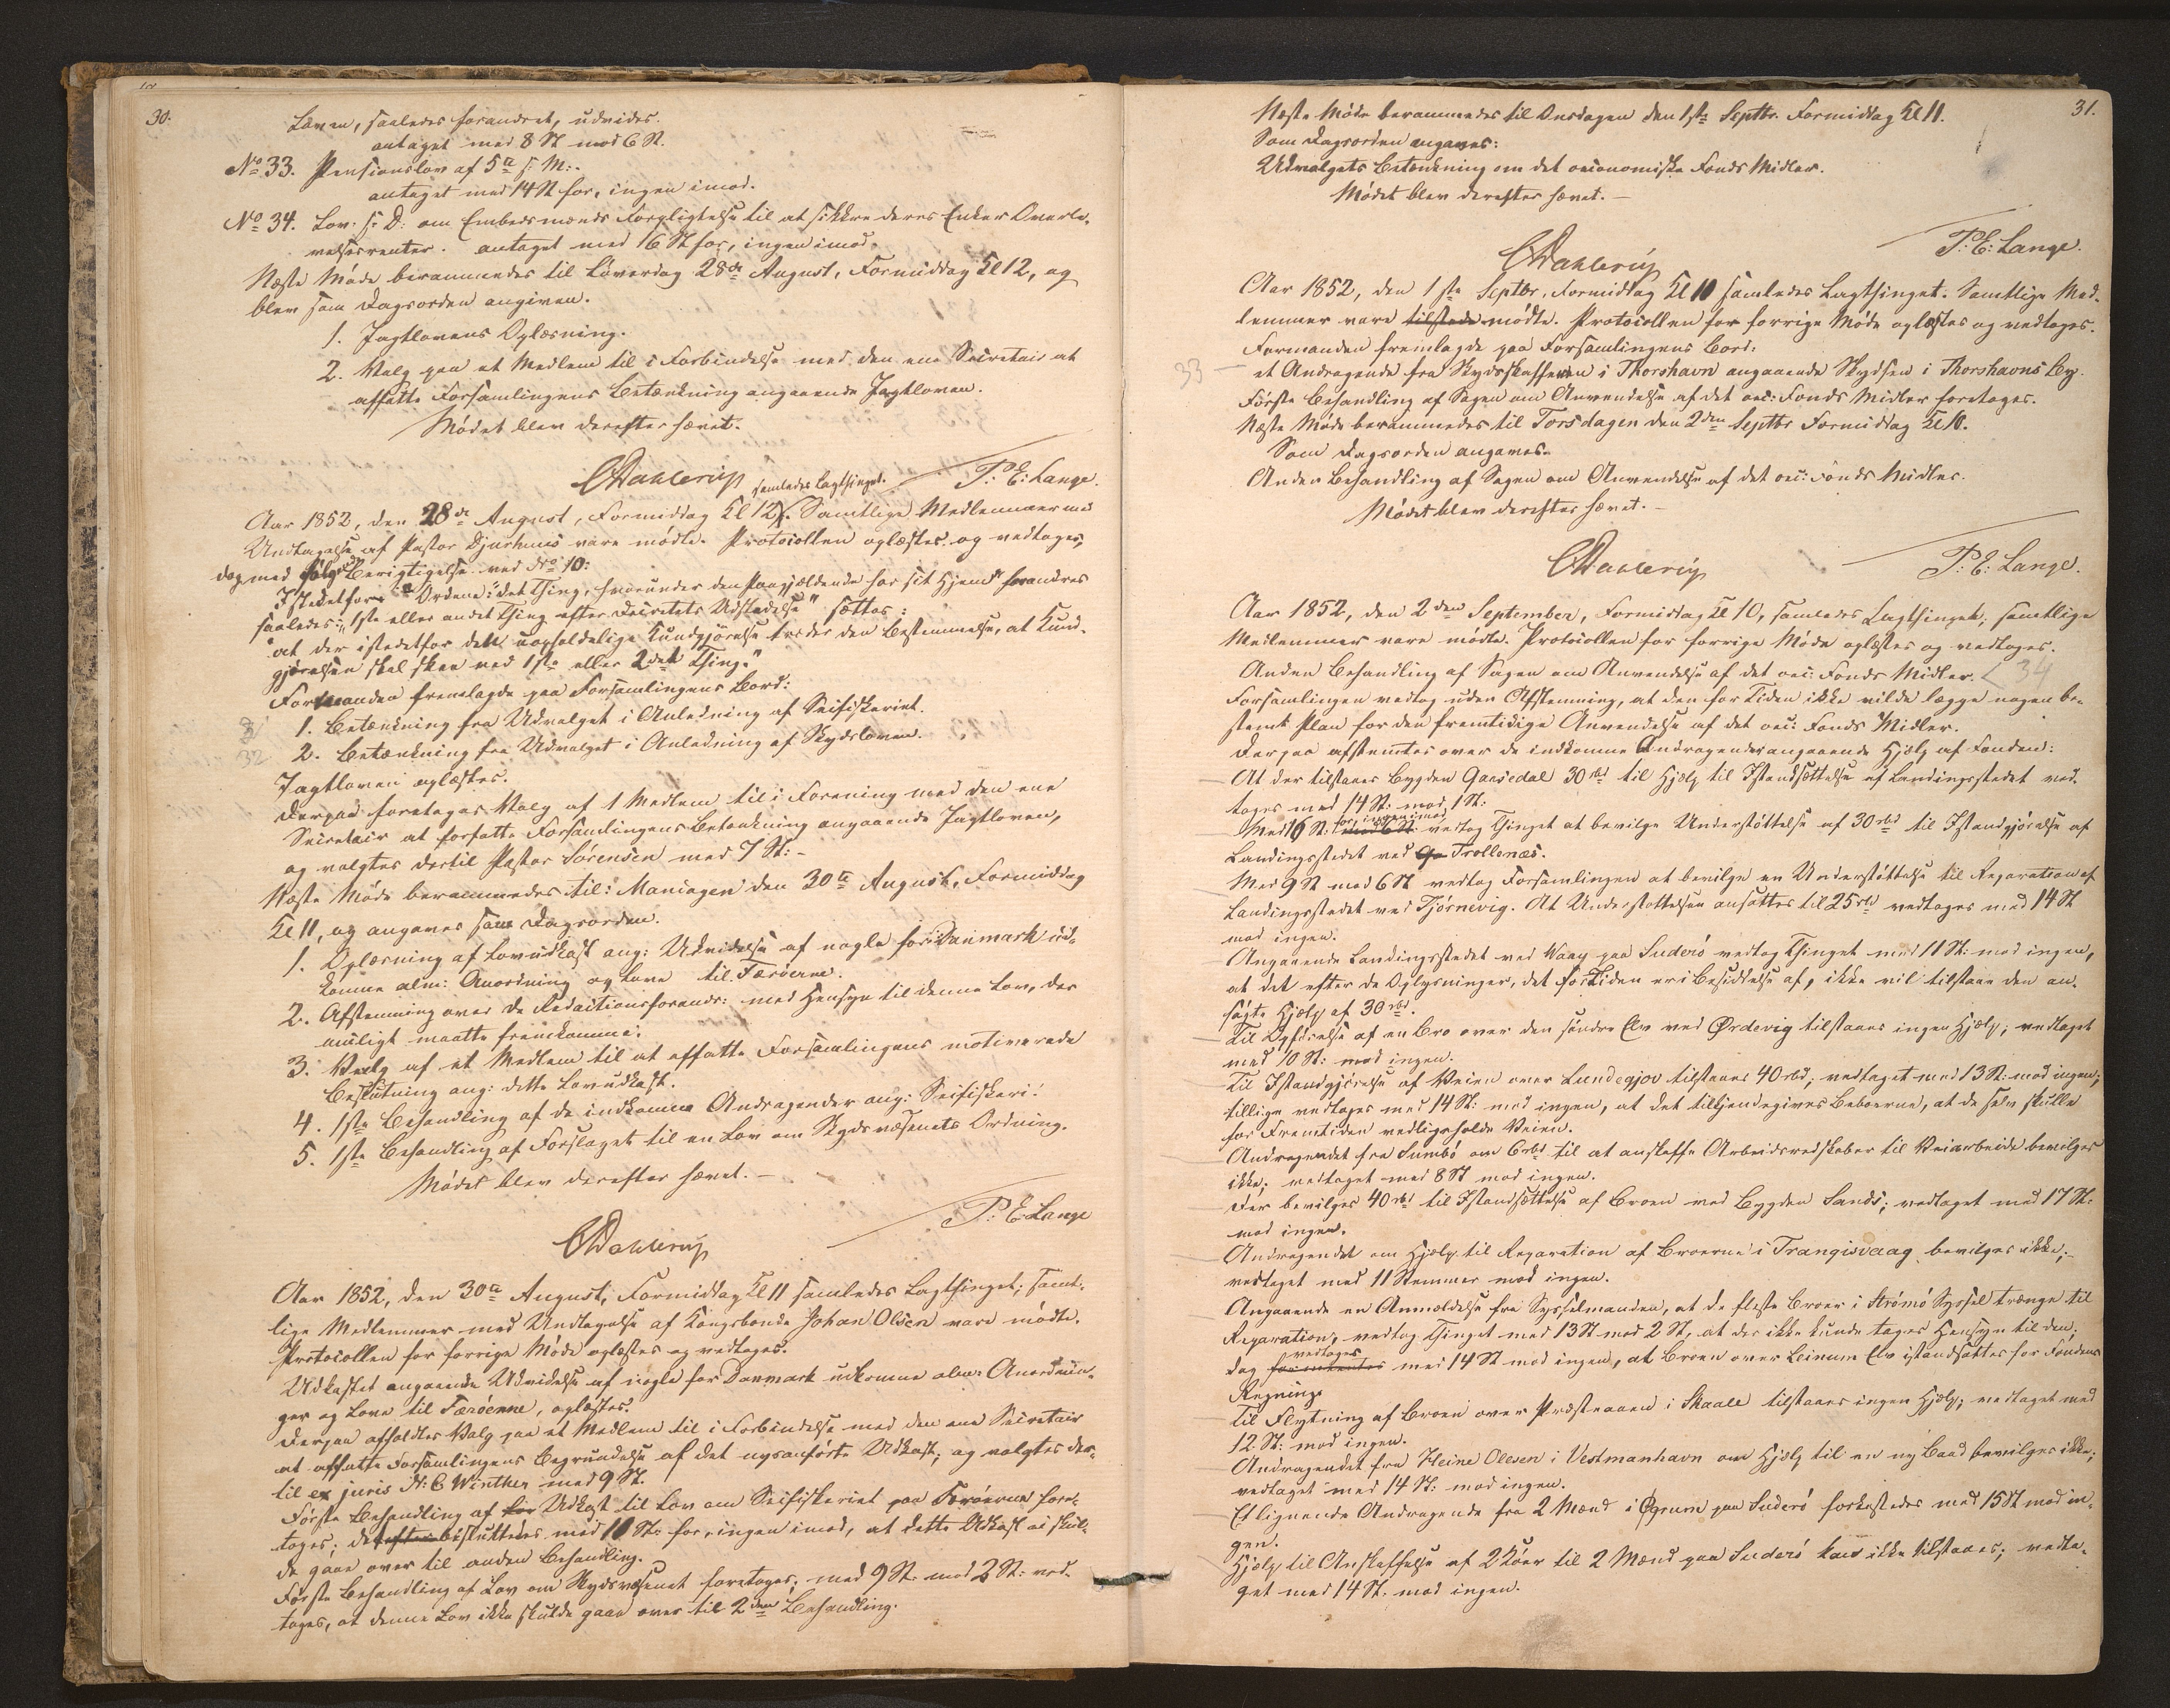 30.
Loven, saaledes forandret, udvides.
antaget med 8 St mod 6 St.
No 33. Pensionslov af 5te s: M:.
antaget med 14 St for, ingen imod.
No 34. Lov. s: D: om Embedsmænds Forpligtelse til at sikkre deres Enker Overle-
velsesrenter. antaget med 16 St for, ingen imod.
Næste Møde berammedes til Løverdag 28de August, Formiddag Kl 12, og
blev som Dagsorden angiven.
1. Jagtlovens Oplæsning.
2. Valg paa et Medlem til i Forbindelse med den ene Secretair at
affatte Forsamlingens Betænkning angaaende Jagtloven.
Mødet blev derefter hævet.
CDahlerup P: E: Lange.
samledes Lagthinget.
Aar 1852, den 28de August, Formiddag Kl 12. Samtlige Medlemmer med
Undtagelse af Pastor Djurhuus vare mødte. Protocollen oplæstes og vedtoges,
dog med følgd Berigtigelse ved No 10:
Istedetfor Ordene: "det Thing, hvorunder den Paagjældende har sit Hjem" forandres
saaledes: "1ste eller andet Thing efter Decretets Udstædelse" sættes:
"at der istedetfor dette uopholdelige Kundgjørelse træder den Bestemmelse, at Kund-
gjørelsen skal skee ved 1ste eller 2det Thing."
Formanden fremlagde paa Forsamlingens Bord:
31 1. Betænkning fra Udvalget i Anledning af Seifiskeriet.
32 2. Betænkning fra Udvalget i Anledning af Skydsloven.
Jagtloven oplæstes.
Derpaa foretoges Valg af 1 Medlem til i Forening med den ene
Secretair at forfatte Forsamlingens Betænkning angaaende Jagtloven,
og valgtes dertil Pastor Sørensen med 7 St: -
Næste Møde berammedes til: Mandagen den 30te August, Formiddag
Kl 11, og angaves som Dagsorden.
1. Oplæsning af Lovudkast ang: Udvidelse af nogle for Danmark ud-
komne alm: Anordning og Love til Færøerne.
2. Afstemning over de Redactionsforandr: med Hensyn til denne Lov, der
muligt maatte fremkomme.
3. Valg af et Medlem til at affatte Forsamlingens motiverede
Beslutning ang: dette Lovudkast.
4. 1ste Behandling af de indkomne Andragender ang: Seifiskeri.
5. 1ste Behandling af Forslaget til en Lov om Skydsvæsenets Ordning.
Mødet blev derefter hævet. -
CDahlerup P: E: Lange
Aar 1852, den 30te August, Formiddag Kl 11 samledes Lagthinget; samt-
lige Medlemmer med Undtagelse af Kongsbonde Johan Olsen vare mødte.
Protocollen for forrige Møde oplæstes og vedtoges.
Udkastet angaaende Udvidelse af nogle for Danmark udkomne alm: Anordnin-
ger og Love til Færøerne, oplæstes.
Derpaa afholdtes Valg paa et Medlem til i Forbindelse med den ene Secretair
at affatte Forsamlingens Begrundelse af det nysanførte Udkast, og valgtes der-
til ex juris N: C Winther med 9 St.
Første Behandling af Udkast til Lov om Seifiskeriet paa Færøerne fore-
toges; besluttedes med 10 St: for, ingen imod, at dette Udkast ei skul-
de gaae over til anden Behandling.
Første Behandling af Lov om Skydsvæsenet foretoges; med 9 St. mod 2 St: ved-
toges, at denne Lov ikke skulde gaae over til 2den Behandling.
31.
Næste Møde berammedes til Onsdagen den 1ste Septbr. Formiddag Kl 11.
Som Dagsorden angaves:
Udvalgets Betænkning om det oeconomiske Fonds Midler.
Mødet blev derefter hævet. -
CDahlerup P: E: Lange.
Aar 1852, den 1ste Septbr, Formiddag Kl 10 samledes Lagthinget. Samtlige Med-
lemmer vare tilstede mødte. Protocollen for forrige Møde oplæstes og vedtoges.
Formanden fremlagde paa Forsamlingens Bord:
33 - et Andragende fra Skydsskafferen i Thorshavn angaaende Skydsen i Thorshavns By.
Første Behandling af Sagen om Anvendelse af det oec: Fonds Midler foretoges.
Næste Møde berammedes til Torsdagen den 2den Septbr Formiddag Kl 10.
Som Dagsorden angaves.
Anden Behandling af Sagen om Anvendelse af det oec: Fonds Midler.
Mødet blev derefter hævet. -
CDahlerup P: E: Lange.
Aar 1852, den 2den September, Formiddag Kl 10, samledes Lagthinget; samtlige
Medlemmer vare mødte. Protocollen for forrige Møde oplæstes og vedtoges.
Anden Behandling af Sagen om Anvendelse af det oec: Fonds Midler. < 34
Forsamlingen vedtog uden Afstemning, at den for Tiden ikke vilde lægge nogen be-
stemt Plan for den fremtidige Anvendelse af det oec: Fonds Midler.
Derpaa afstemtes over de indkomne Andragender angaaende Hjælp af Fonden:
At der tilstaaes Bygden Gaasedal 30 rbd til Hjælp til Istandsættelse af Landingsstedet ved-
toges med 14 St: mod 1 St:
for, ingen imod
Med 16 St: mod 6 St: vedtog Thinget at bevilge Understøttelse af 30 rbd til Istandgjørelse af
Landingsstedet ved Ga Trollenæs.
Med 9 St mod 6 St vedtog Forsamlingen at bevilge en Understøttelse til Reparation af
Landingsstedet ved Tjørnevig. At Understøttelsen ansættes til 25 rbd vedtoges med 14 St
mod ingen.
Angaaende Landingsstedet ved Waag paa Suderø vedtog Thinget med 11 St: mod ingen,
at det efter de Oplysninger, det for Tiden er i Besiddelse af, ikke vil tilstaae den an-
søgte Hjælp af 30 rbd.
Til Opførelse af en Bro over den søndre Elv ved Ørdevig tilstaaes ingen Hjælp; vedtaget
med 10 St: mod ingen.
Til Istandgjørelse af Veien over Lundegjov tilstaaes 40 rbd; vedtaget med 13 St: mod ingen;
tillige vedtoges med 14 St: mod ingen, at det tilkjendegives Beboerne, at de selv skulle
for Fremtiden vedligeholde Veien.
Andragendet fra Sumbø om 6 rbd til at anskaffe Arbeidsredskaber til Veiarbeide bevilges
ikke; vedtaget med 8 St mod ingen.
Der bevilges 40 rbd til Istandsættelse af Broen ved Bygden Sands; vedtaget med 17 St.
mod ingen.
Andragendet om Hjælp til Reparation af Broerne i Trangisvaag bevilges ikke;
vedtaget med 11 Stemmer mod ingen.
Angaaende en Anmeldelse fra Sysselmanden, at de fleste Broer i Strømø Syssel trænge til
Reparation, vedtog Thinget med 13 St mod 2 St, at der ikke kunde tages Hensyn til den;
vedtoges
dog med 14 St mod ingen, at Broen over Leinum Elv istandsættes for Fondens
Regning.
Til Flytning af Broen over Præsteaaen i Skaale tilstaaes ingen Hjælp; vedtaget med
12 St: mod ingen.
Andragendet fra Heine Olesen i Vestmanhavn om Hjælp til en ny Baad bevilges ikke;
vedtaget med 14 St: mod ingen.
Et lignende Andragende fra 2 Mænd i Øgrum paa Suderø forkastedes med 15 St mod in-
gen.
Hjælp til Anskaffelse af 2 Køer til 2 Mænd paa Suderø kan ikke tilstaaes; vedta-
get med 14 St. mod ingen.